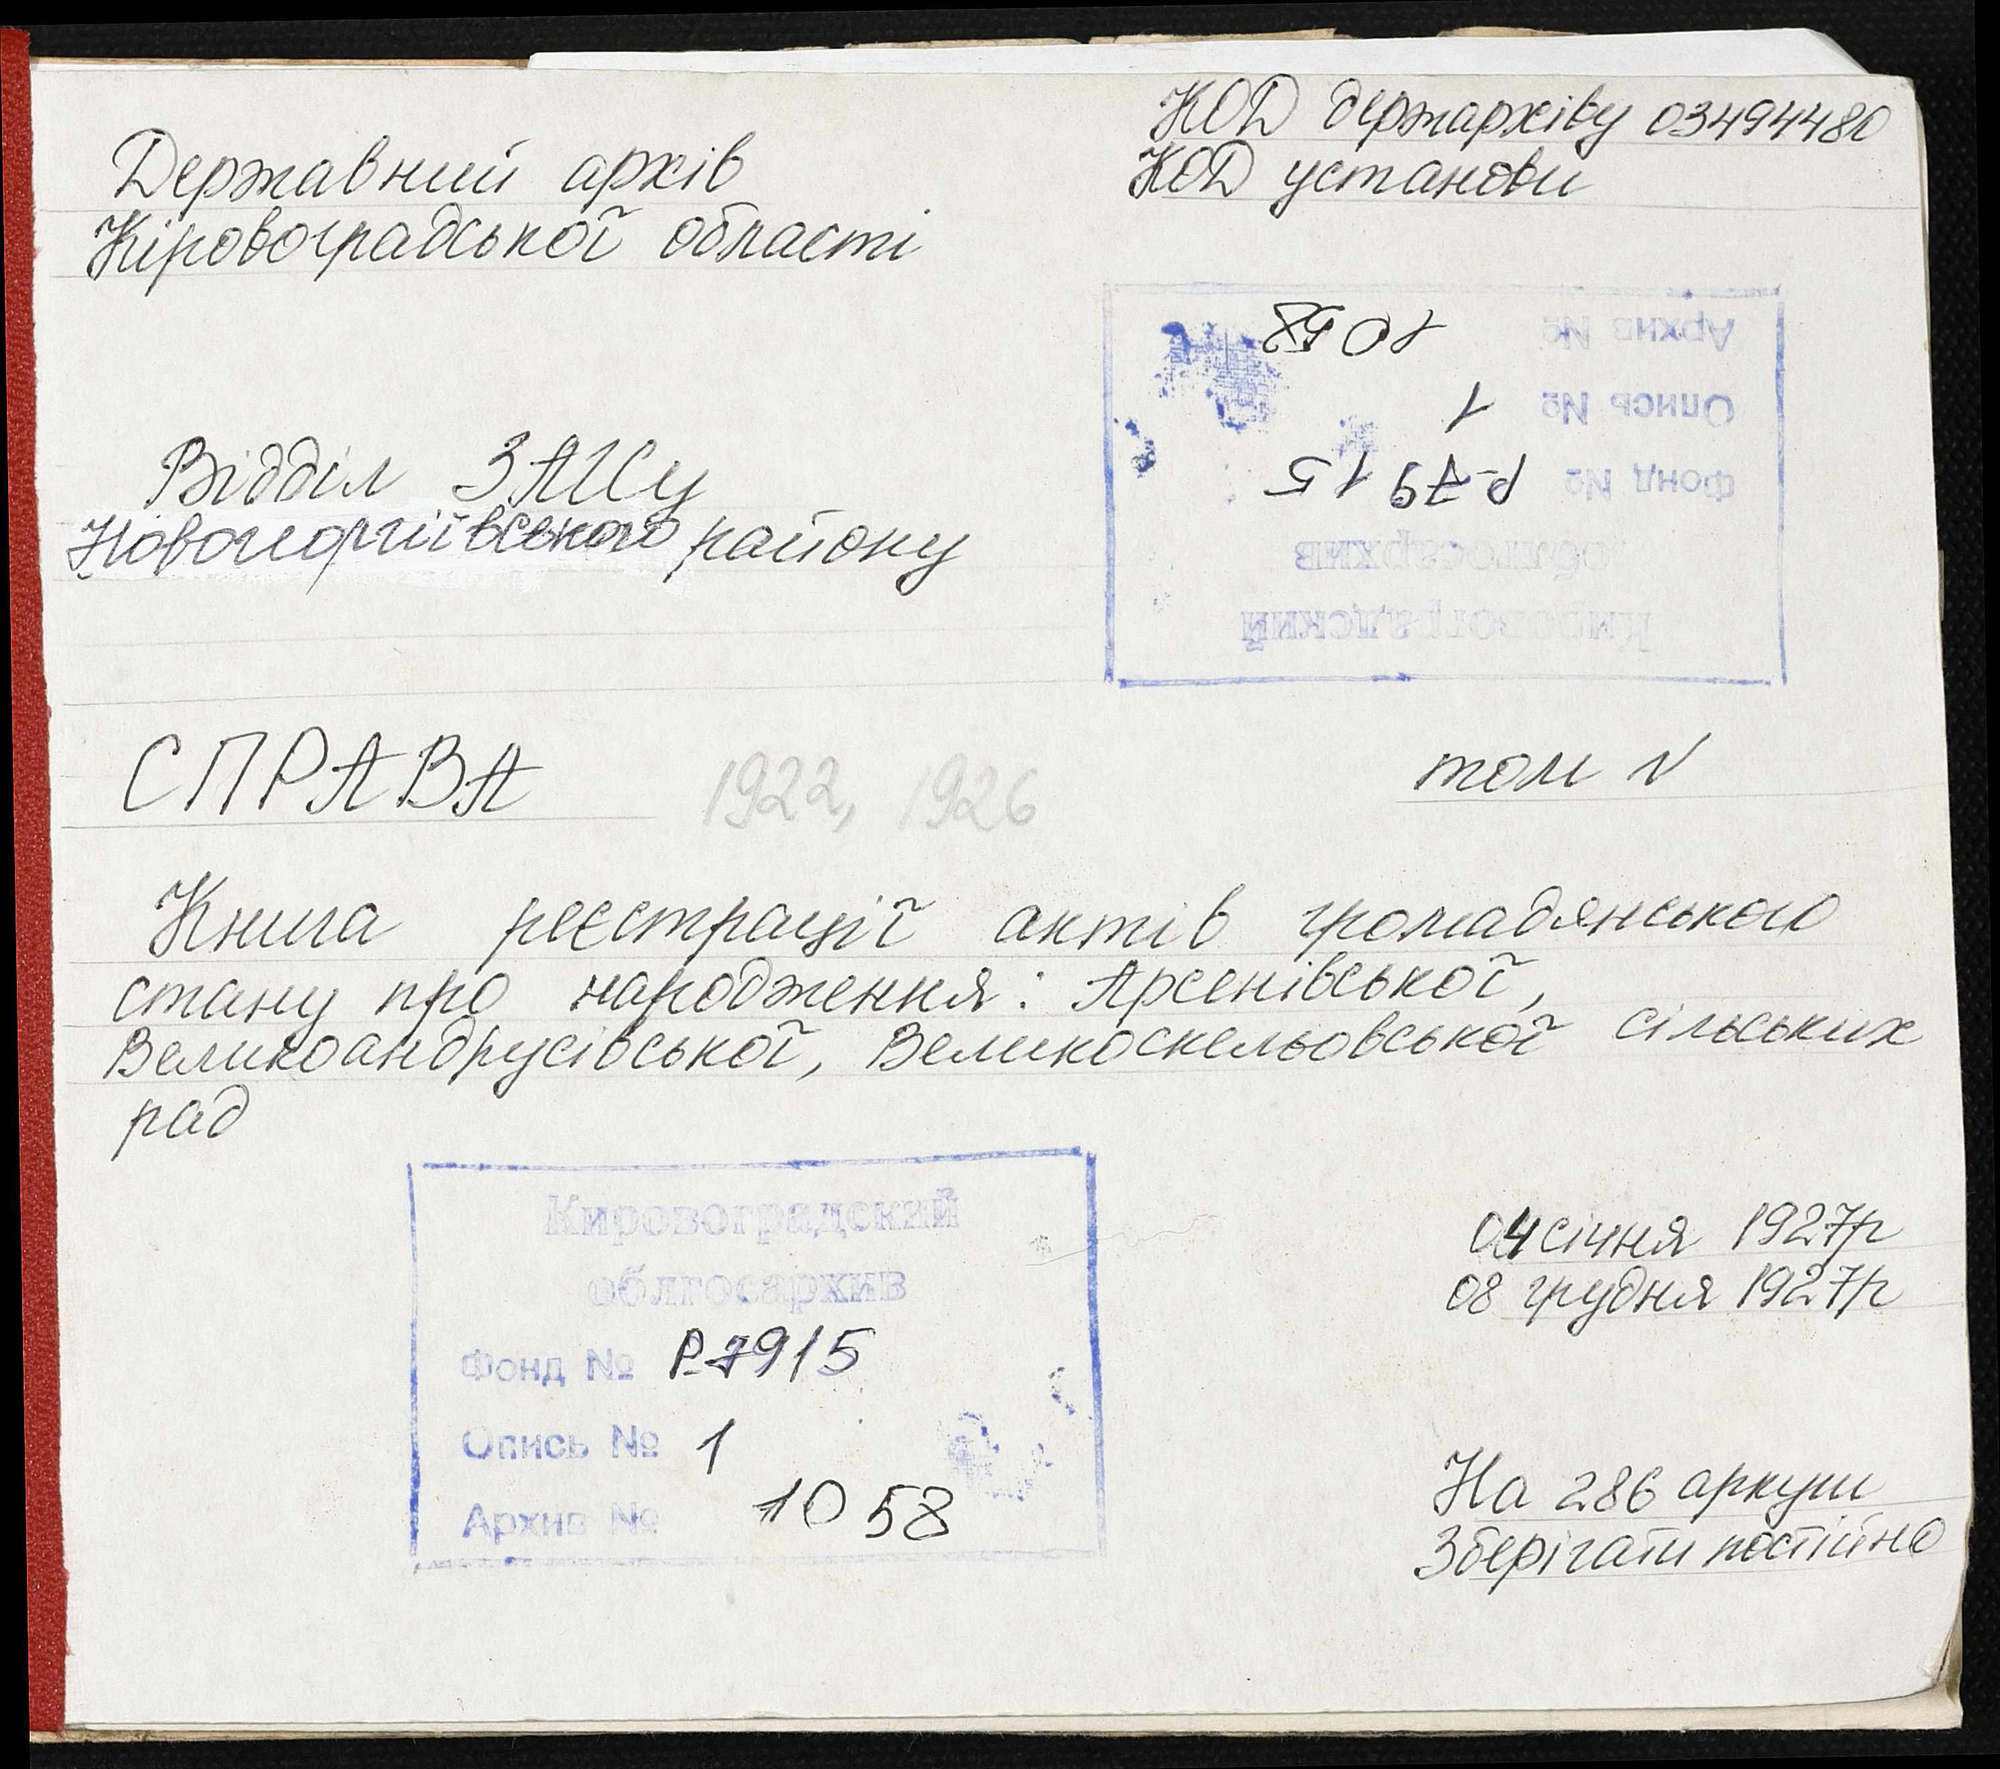 КОД держархіву 03494480
КОД установи
Державний архів
Кіровоградської області
Кировоградский
облгосархив
Фонд № Р-7915
Опись № 1
Архив № 1058
Відділ ЗАГСу
Новогеоргіївського району
СПРАВА 1922, 1926 том N
Книга реєстрації актів громадянського
стану про народження: Арсенівської,
Великоандрусівської, Великоскельовської сільських
рад
Кировоградский
облгосархив
Фонд № Р-7915
Опись № 1
Архив № 1058
04 січня 1927р
08 грудня 1927р
На 286 аркуш
Зберігати постійно